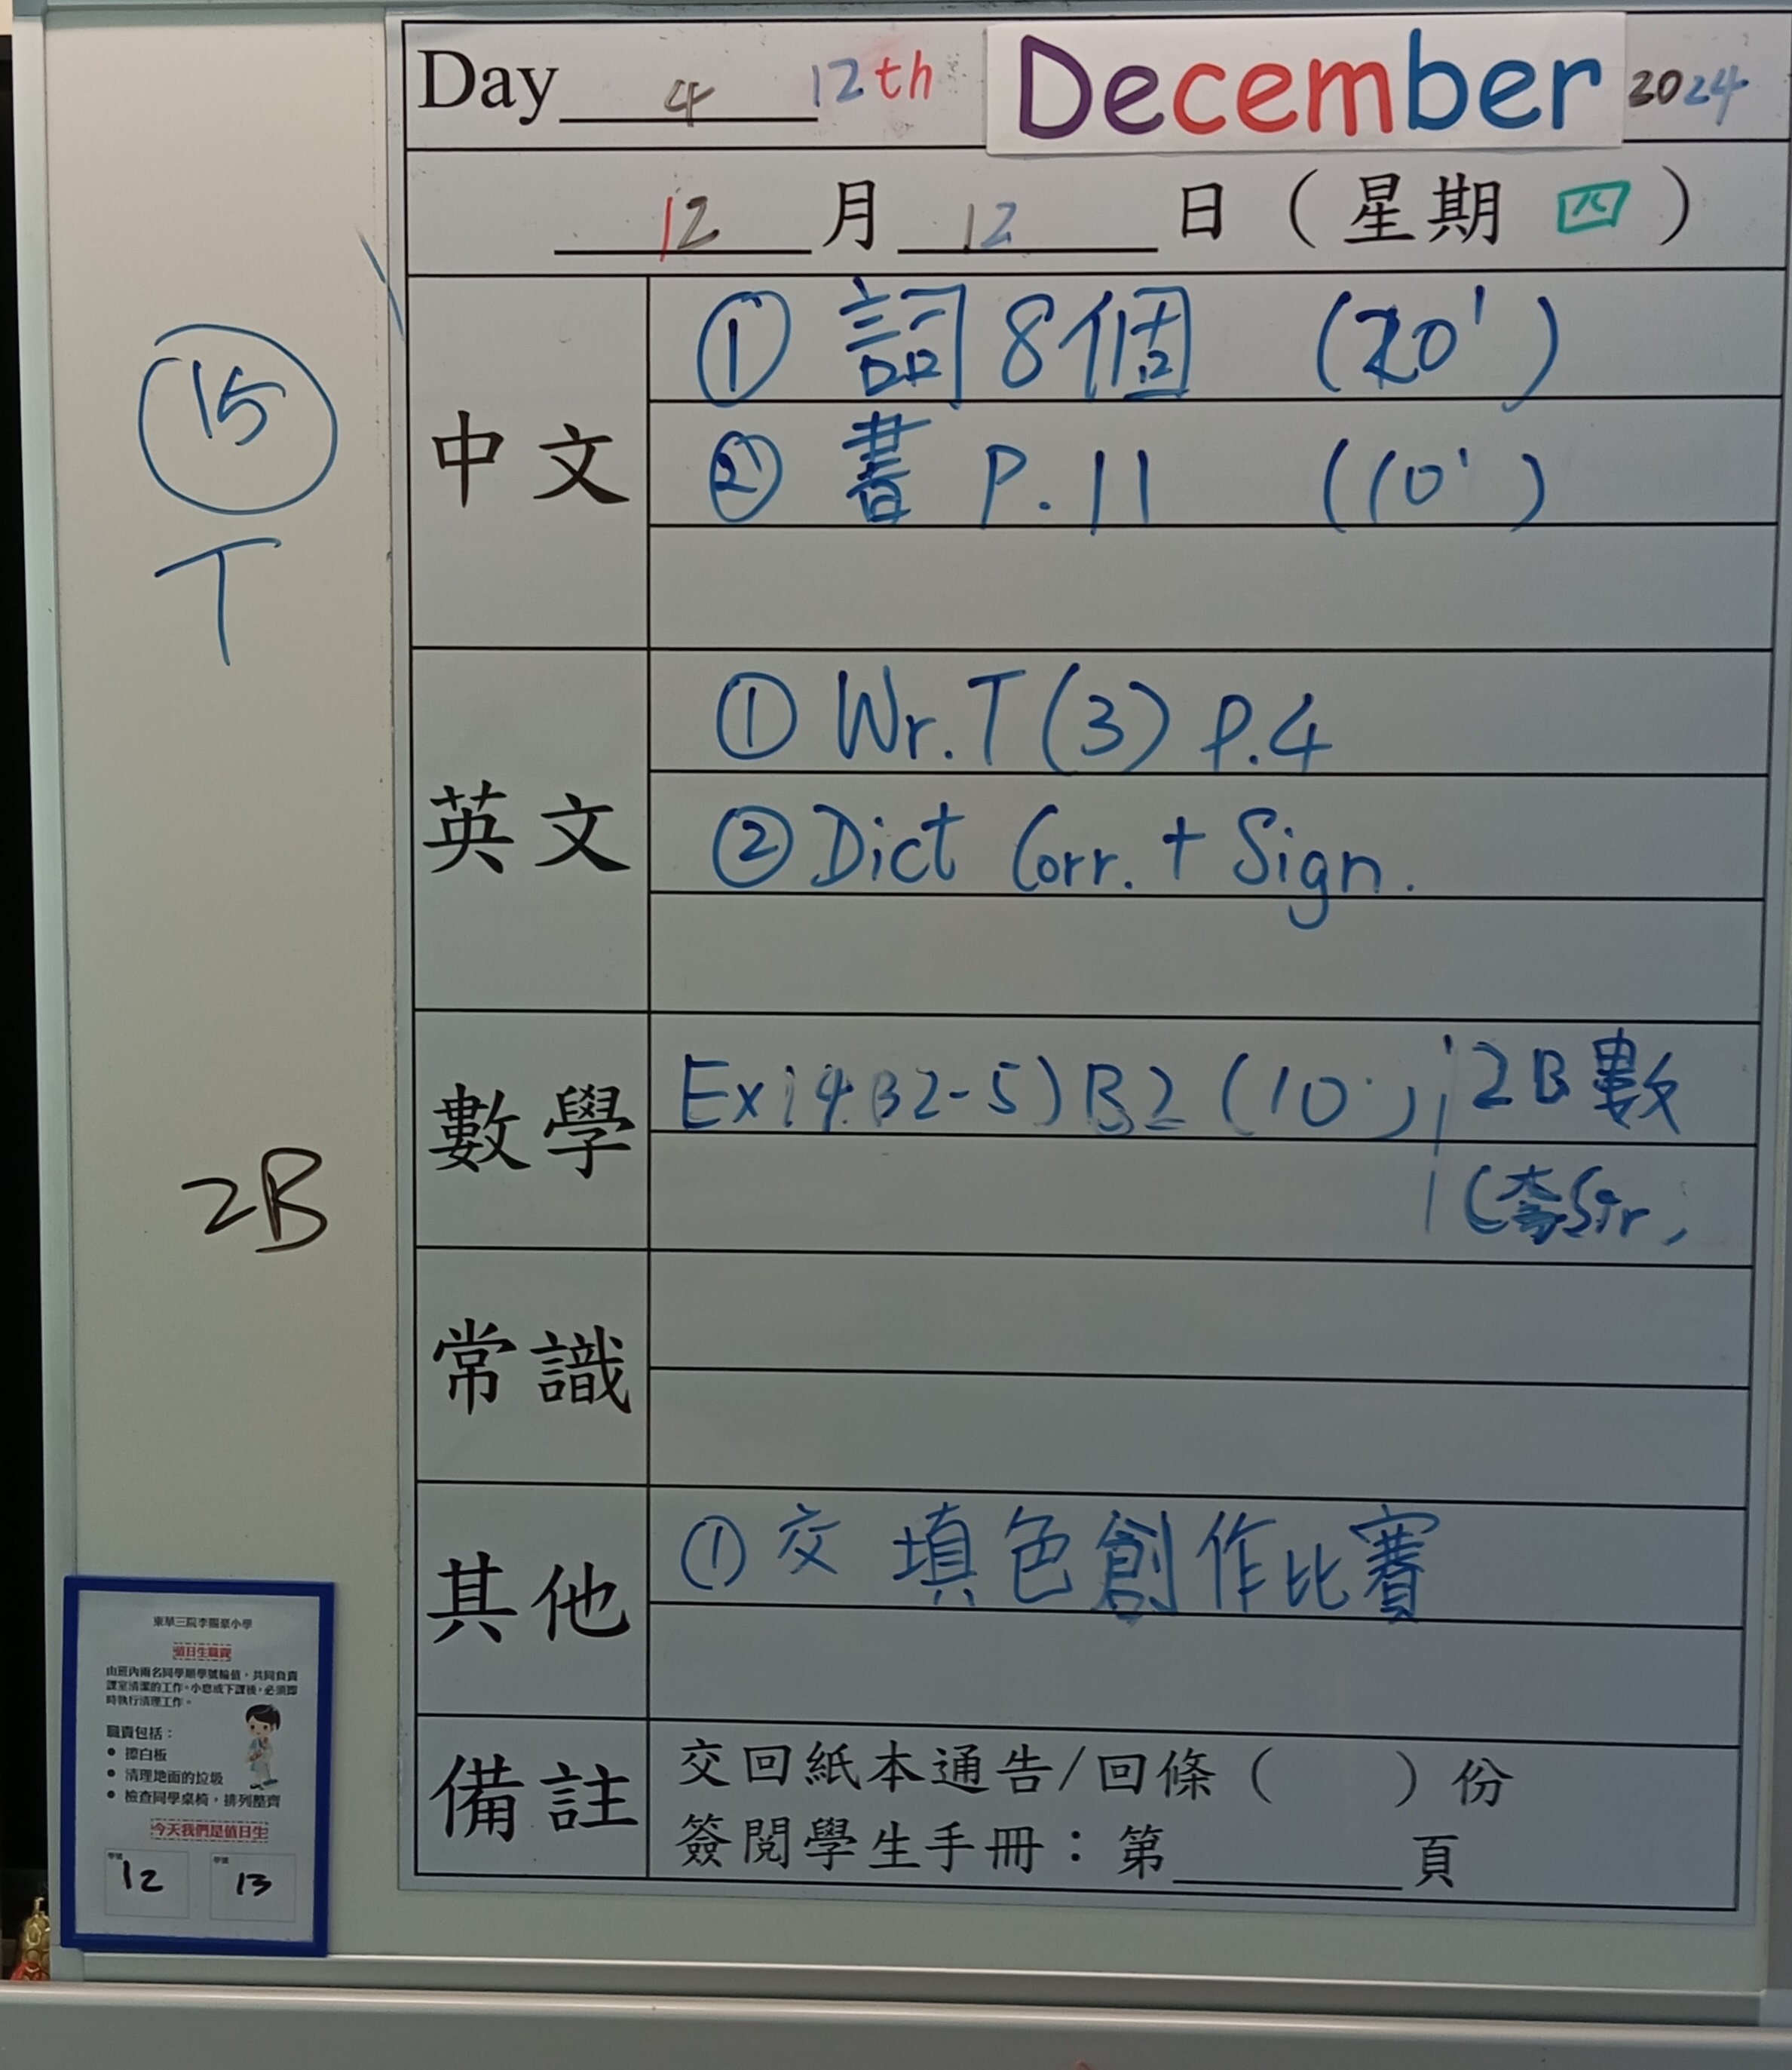 Day 4 12th December 2024
12 月 12 日 ( 星期 四 )
15
T
中文
① 詞 8個 (20')
② 書 P.11 (10')
英文
① Wr.T (3) P.4
② Dict Corr. + Sign.
數學
Ex(4B2-5) B2 (10') 2B 數
Sir
2B
常識
其他
① 交 填色創作比賽
備註
交回紙本通告/回條 ( ) 份
簽閱學生手冊：第 頁
東華三院李賜豪小學
值日生職責
由班內兩名同學順學號輪值，共同負責
課室清潔的工作。小息或下課後，必須即
時執行清理工作。
職責包括：
● 擦白板
● 清理地面的垃圾
● 檢查同學桌椅，排列整齊
今天我們是值日生
學號 學號
12 13